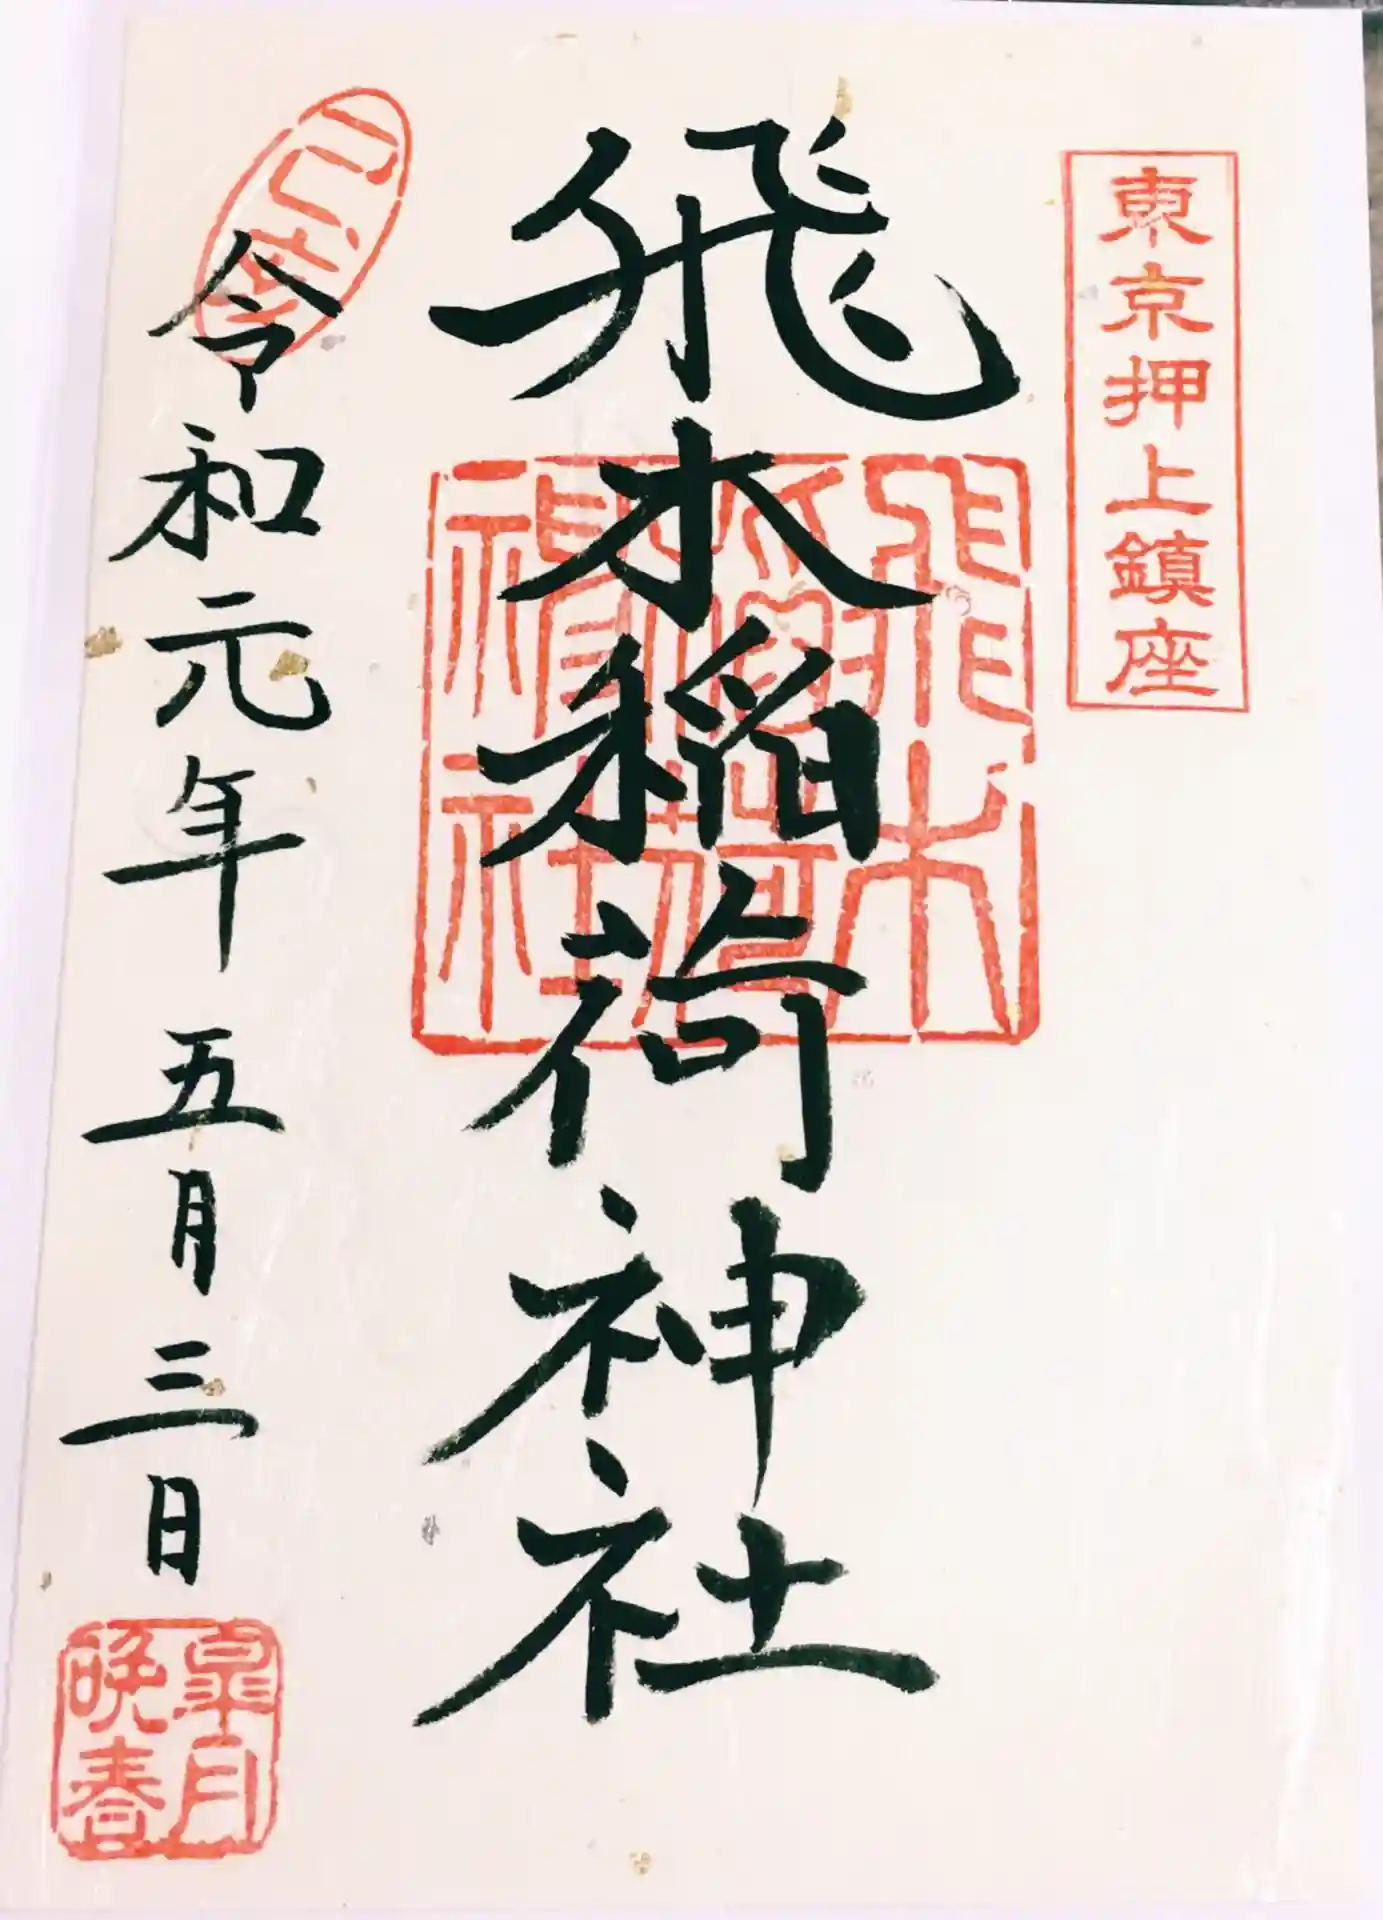 東京押上鎮座
飛木稲荷神社
飛木
稲荷
神社
己亥
令和元年五月三日
皐月
晩春